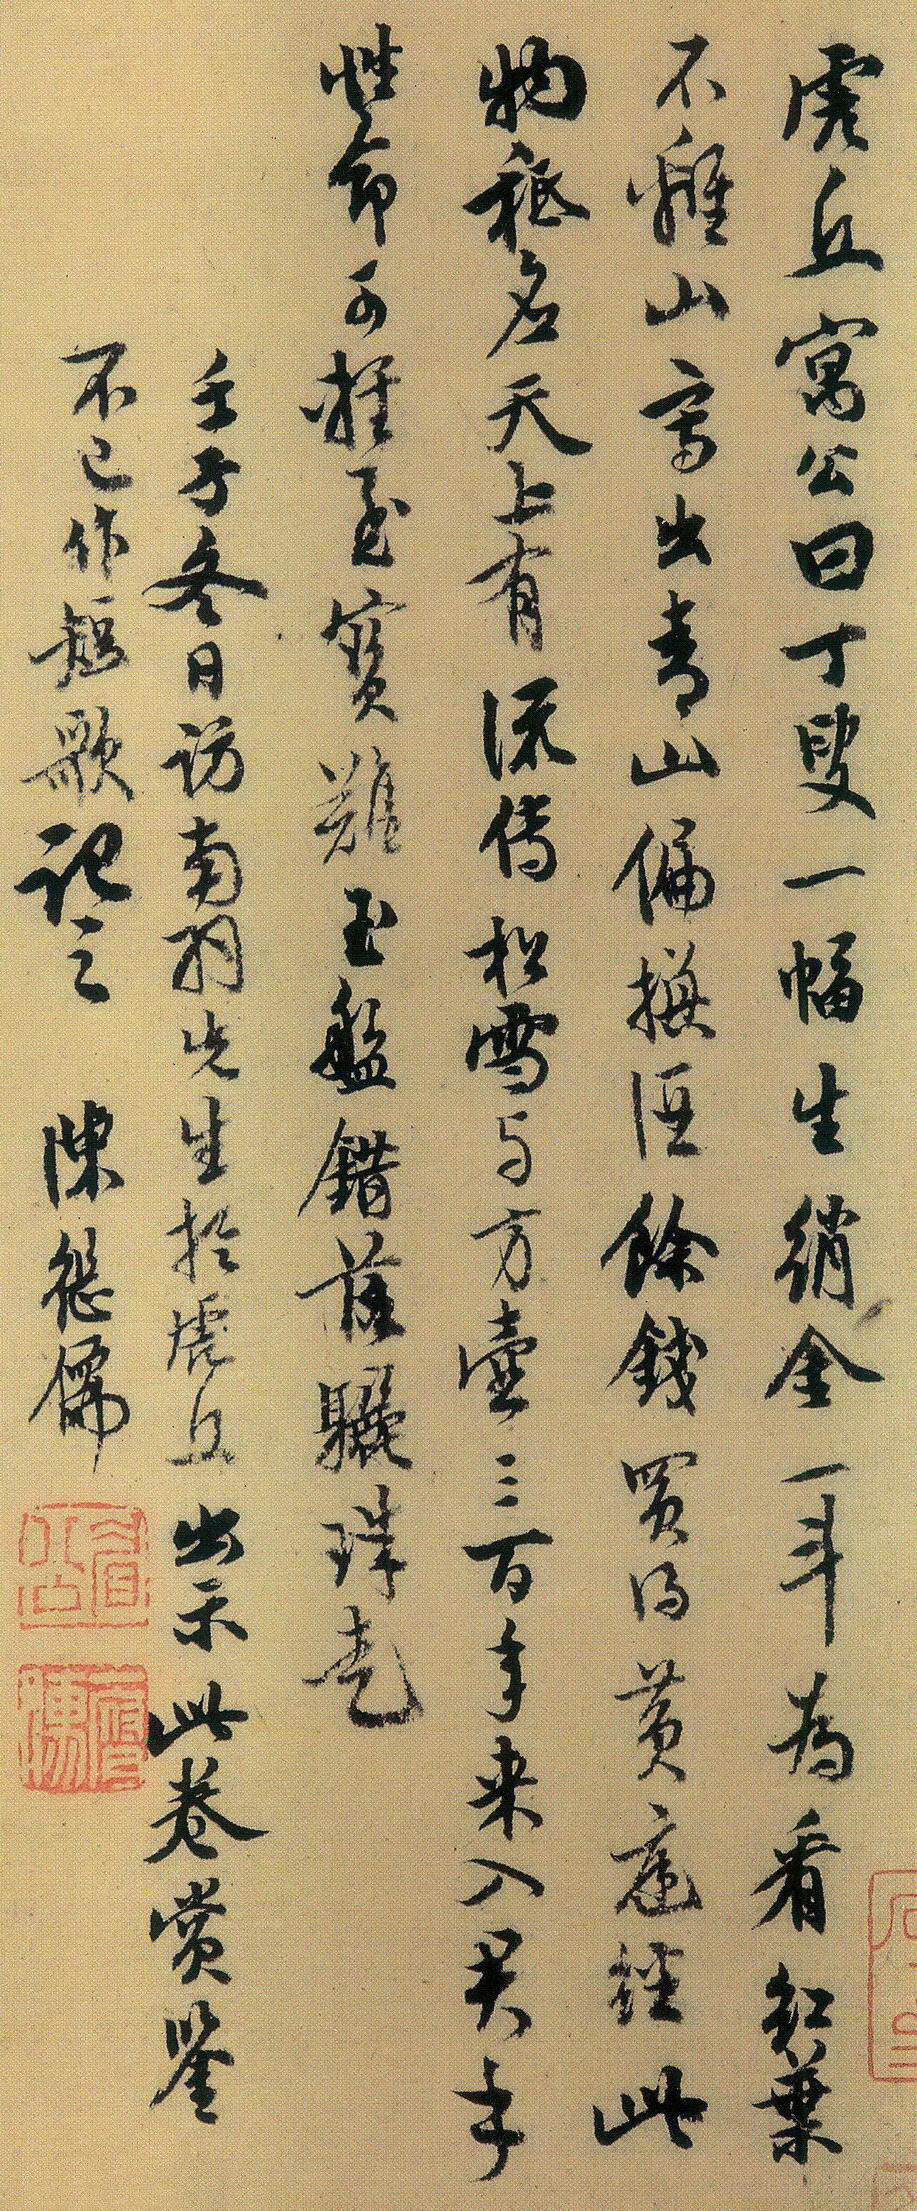 虎丘寓公曰丁叟一幅生綃金一斗為看紅葉
不離山寫出青山偏換酒餘錢買得黃庭經此
物秘名天上有流傳松雪与方壺三百年来入君手
性命可輕至寶難玉盤錯落驪珠走
壬子冬日訪南羽先生於虎丘出示此卷赏鉴
不已作短歌記之 陳繼儒